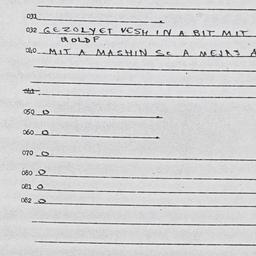 031
032 GEZOLYET VESH IN A BIT MIT
GOLD F
040 MIT A MASHIN SC A MEJRS A
041
050 0
060 0
070 0
080 0
081 0
082 0